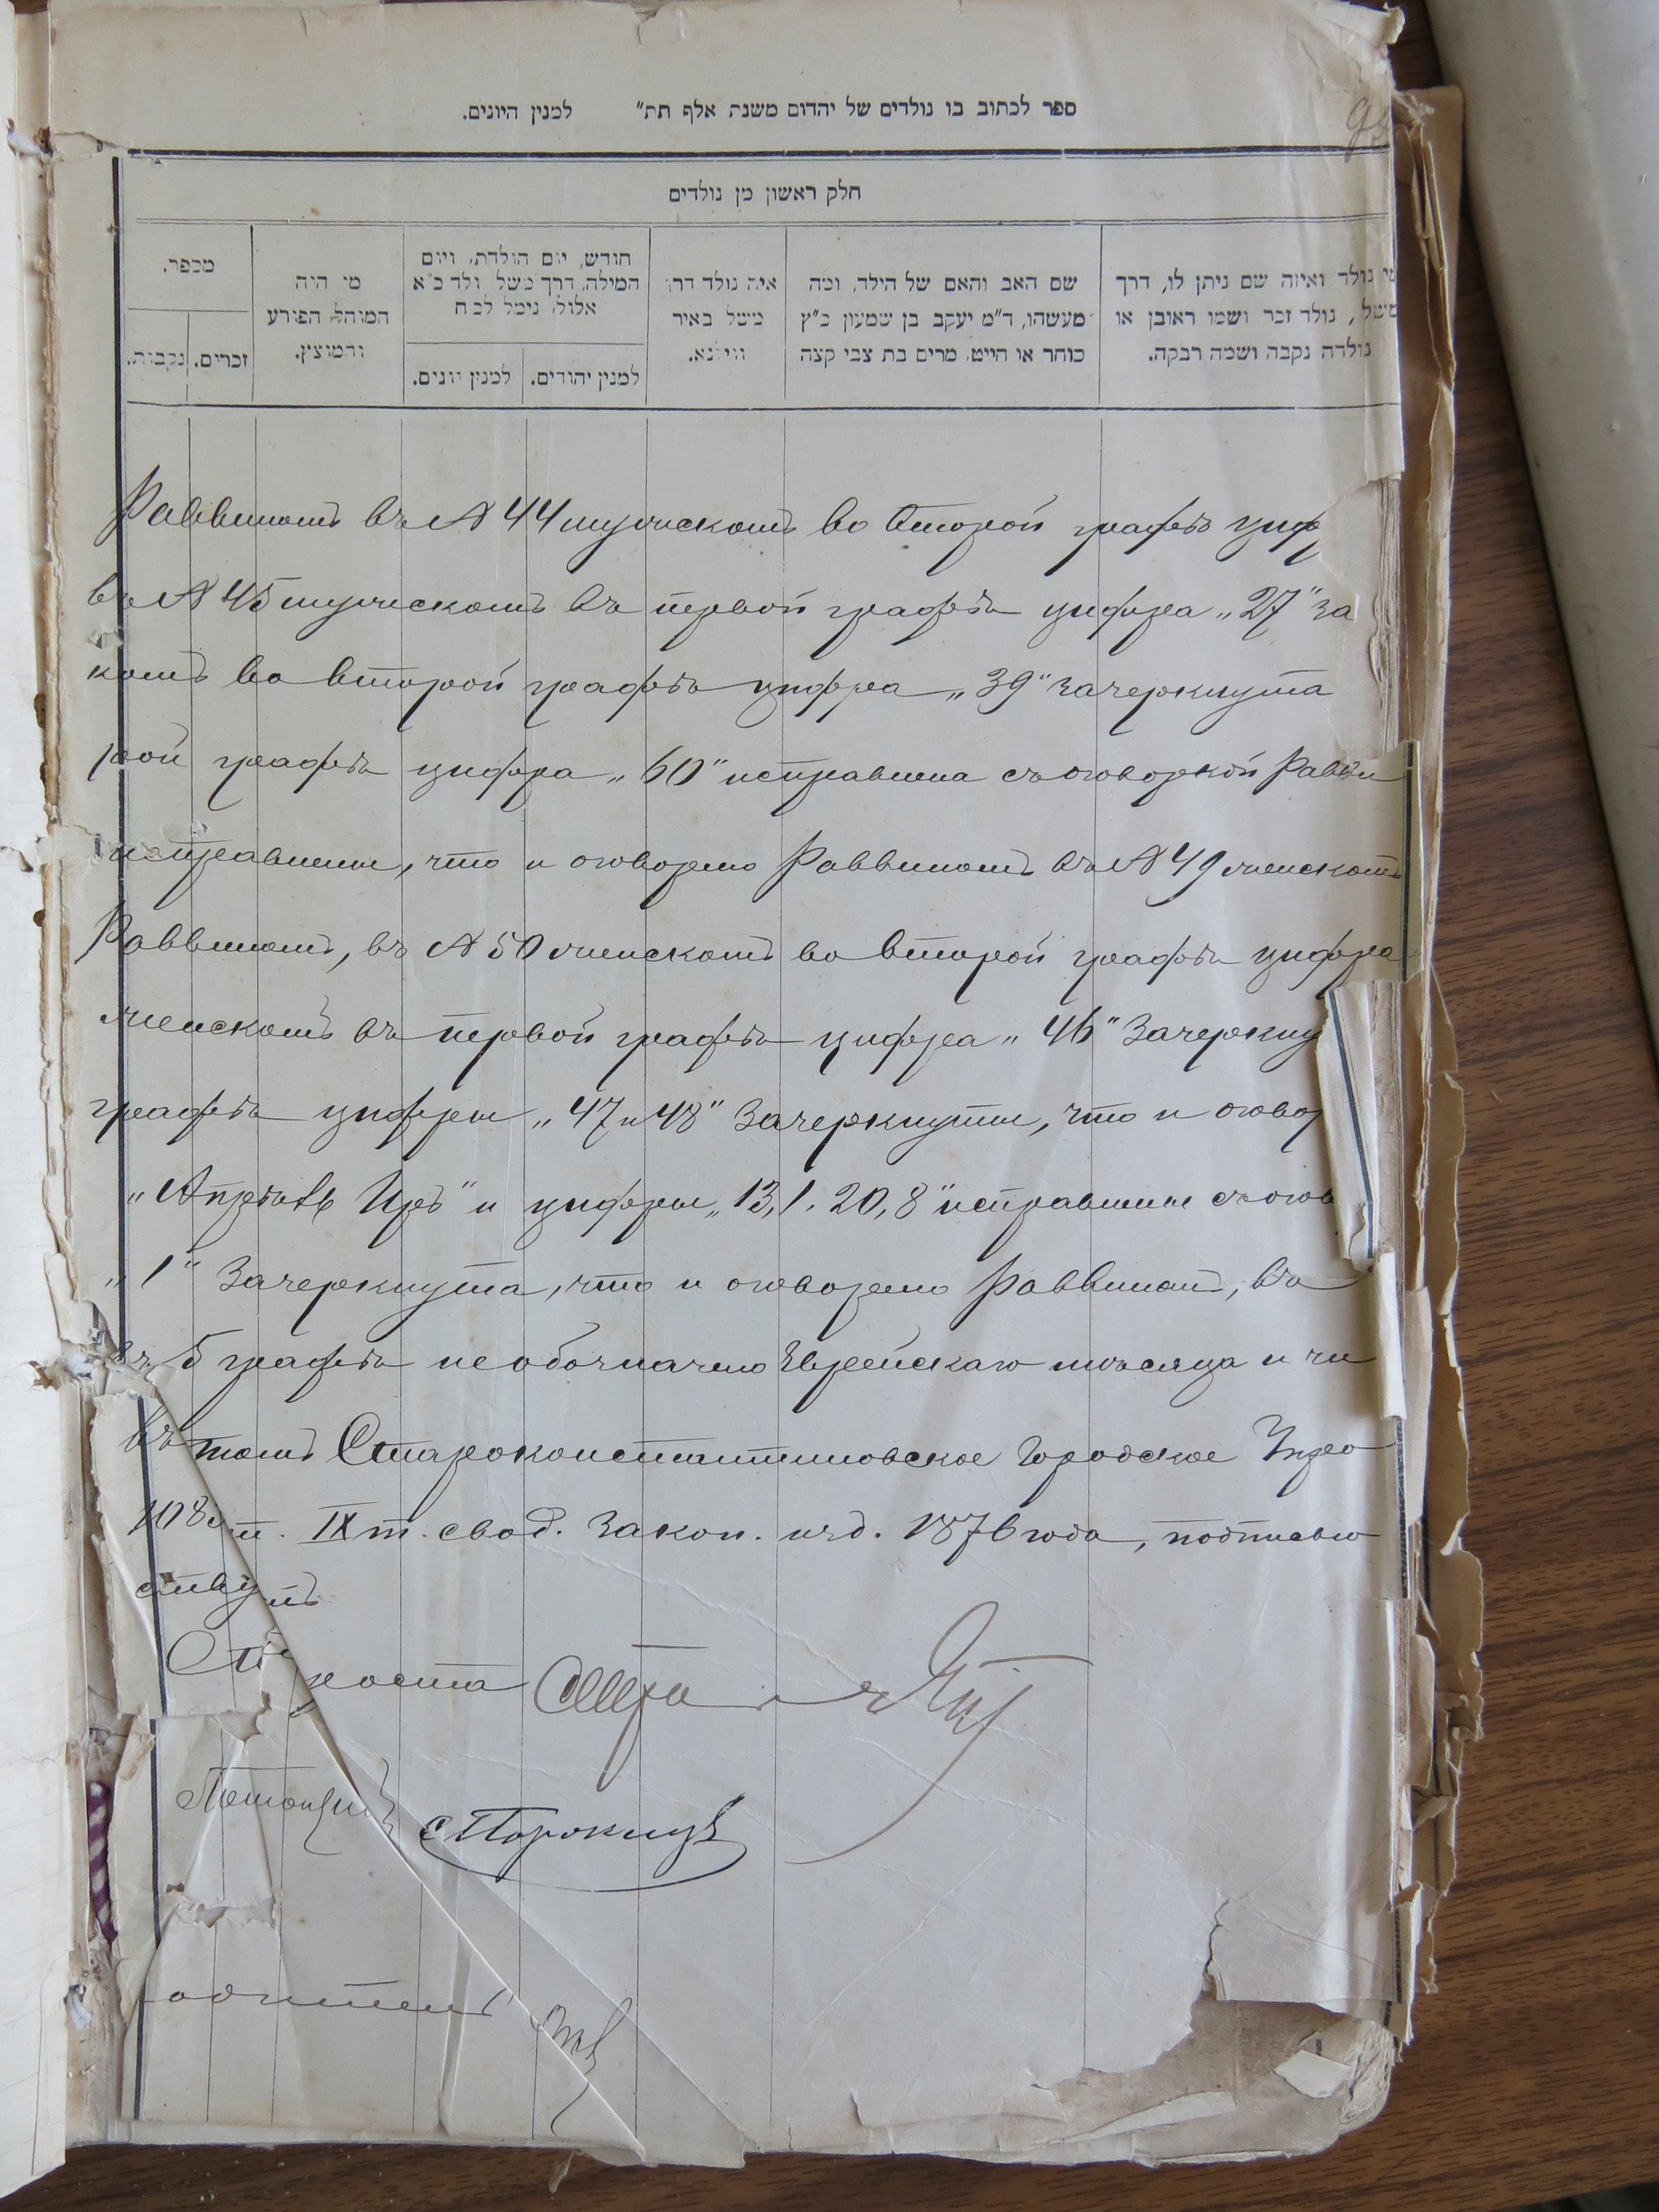 ספר לכתוב בו נולדים של יהדום משנת אלף תת״ למנין היונים.
חלק ראשון מן נולדים
מי נולד ואיזה שם ניתן לו, דרך
משל, נולד זכר ושמו ראובן או
נולדה נקבה ושמה רבקה.
שם האב והאם של הילד, ומה
מעשהו, ד״מ יעקב בן שמעון כ״ץ
סוחר או חייט, מרים בת צבי קצה
איה נולד דרך
משל באיר
ווילנא.
חודש, יום הולדת, ויום
המילה, דרך משל, ולד כ״א
אלול, נימל לכ״ח
למנין יהודים.
למנין יונים.
מי היה
המוהל, הפורע
והמוצץ.
מספר.
זכרים.
נקבות.
Раввиномъ въ № 44 мужскомъ во второй графѣ циф
въ № 45 мужскомъ въ первой графѣ цифра „27" за
комъ во второй графѣ цифра „39" зачеркнута
рой графѣ цифра „60" исправлена съ оговоркой Равви
исправлены, что и оговорено Раввиномъ въ № 49 женскомъ
Раввиномъ, въ № 50 женскомъ во второй графѣ цифра
женскомъ въ первой графѣ цифра „46" зачеркну
графѣ цифры „47 и 48" зачеркнуты, что и оговор
„Апрѣль Иръ" и цифры „13, 1. 20, 8" исправлены съ огов
„1" зачеркнута, что и оговорено Раввиномъ, въ
въ 5 графѣ не обозначено Еврейскаго мѣсяца и чи
въ томъ Староконстантиновское Городское Упра
108 ст. IX т. свод. Закон. изд. 1876 года, подписью
ствуетъ
Староста